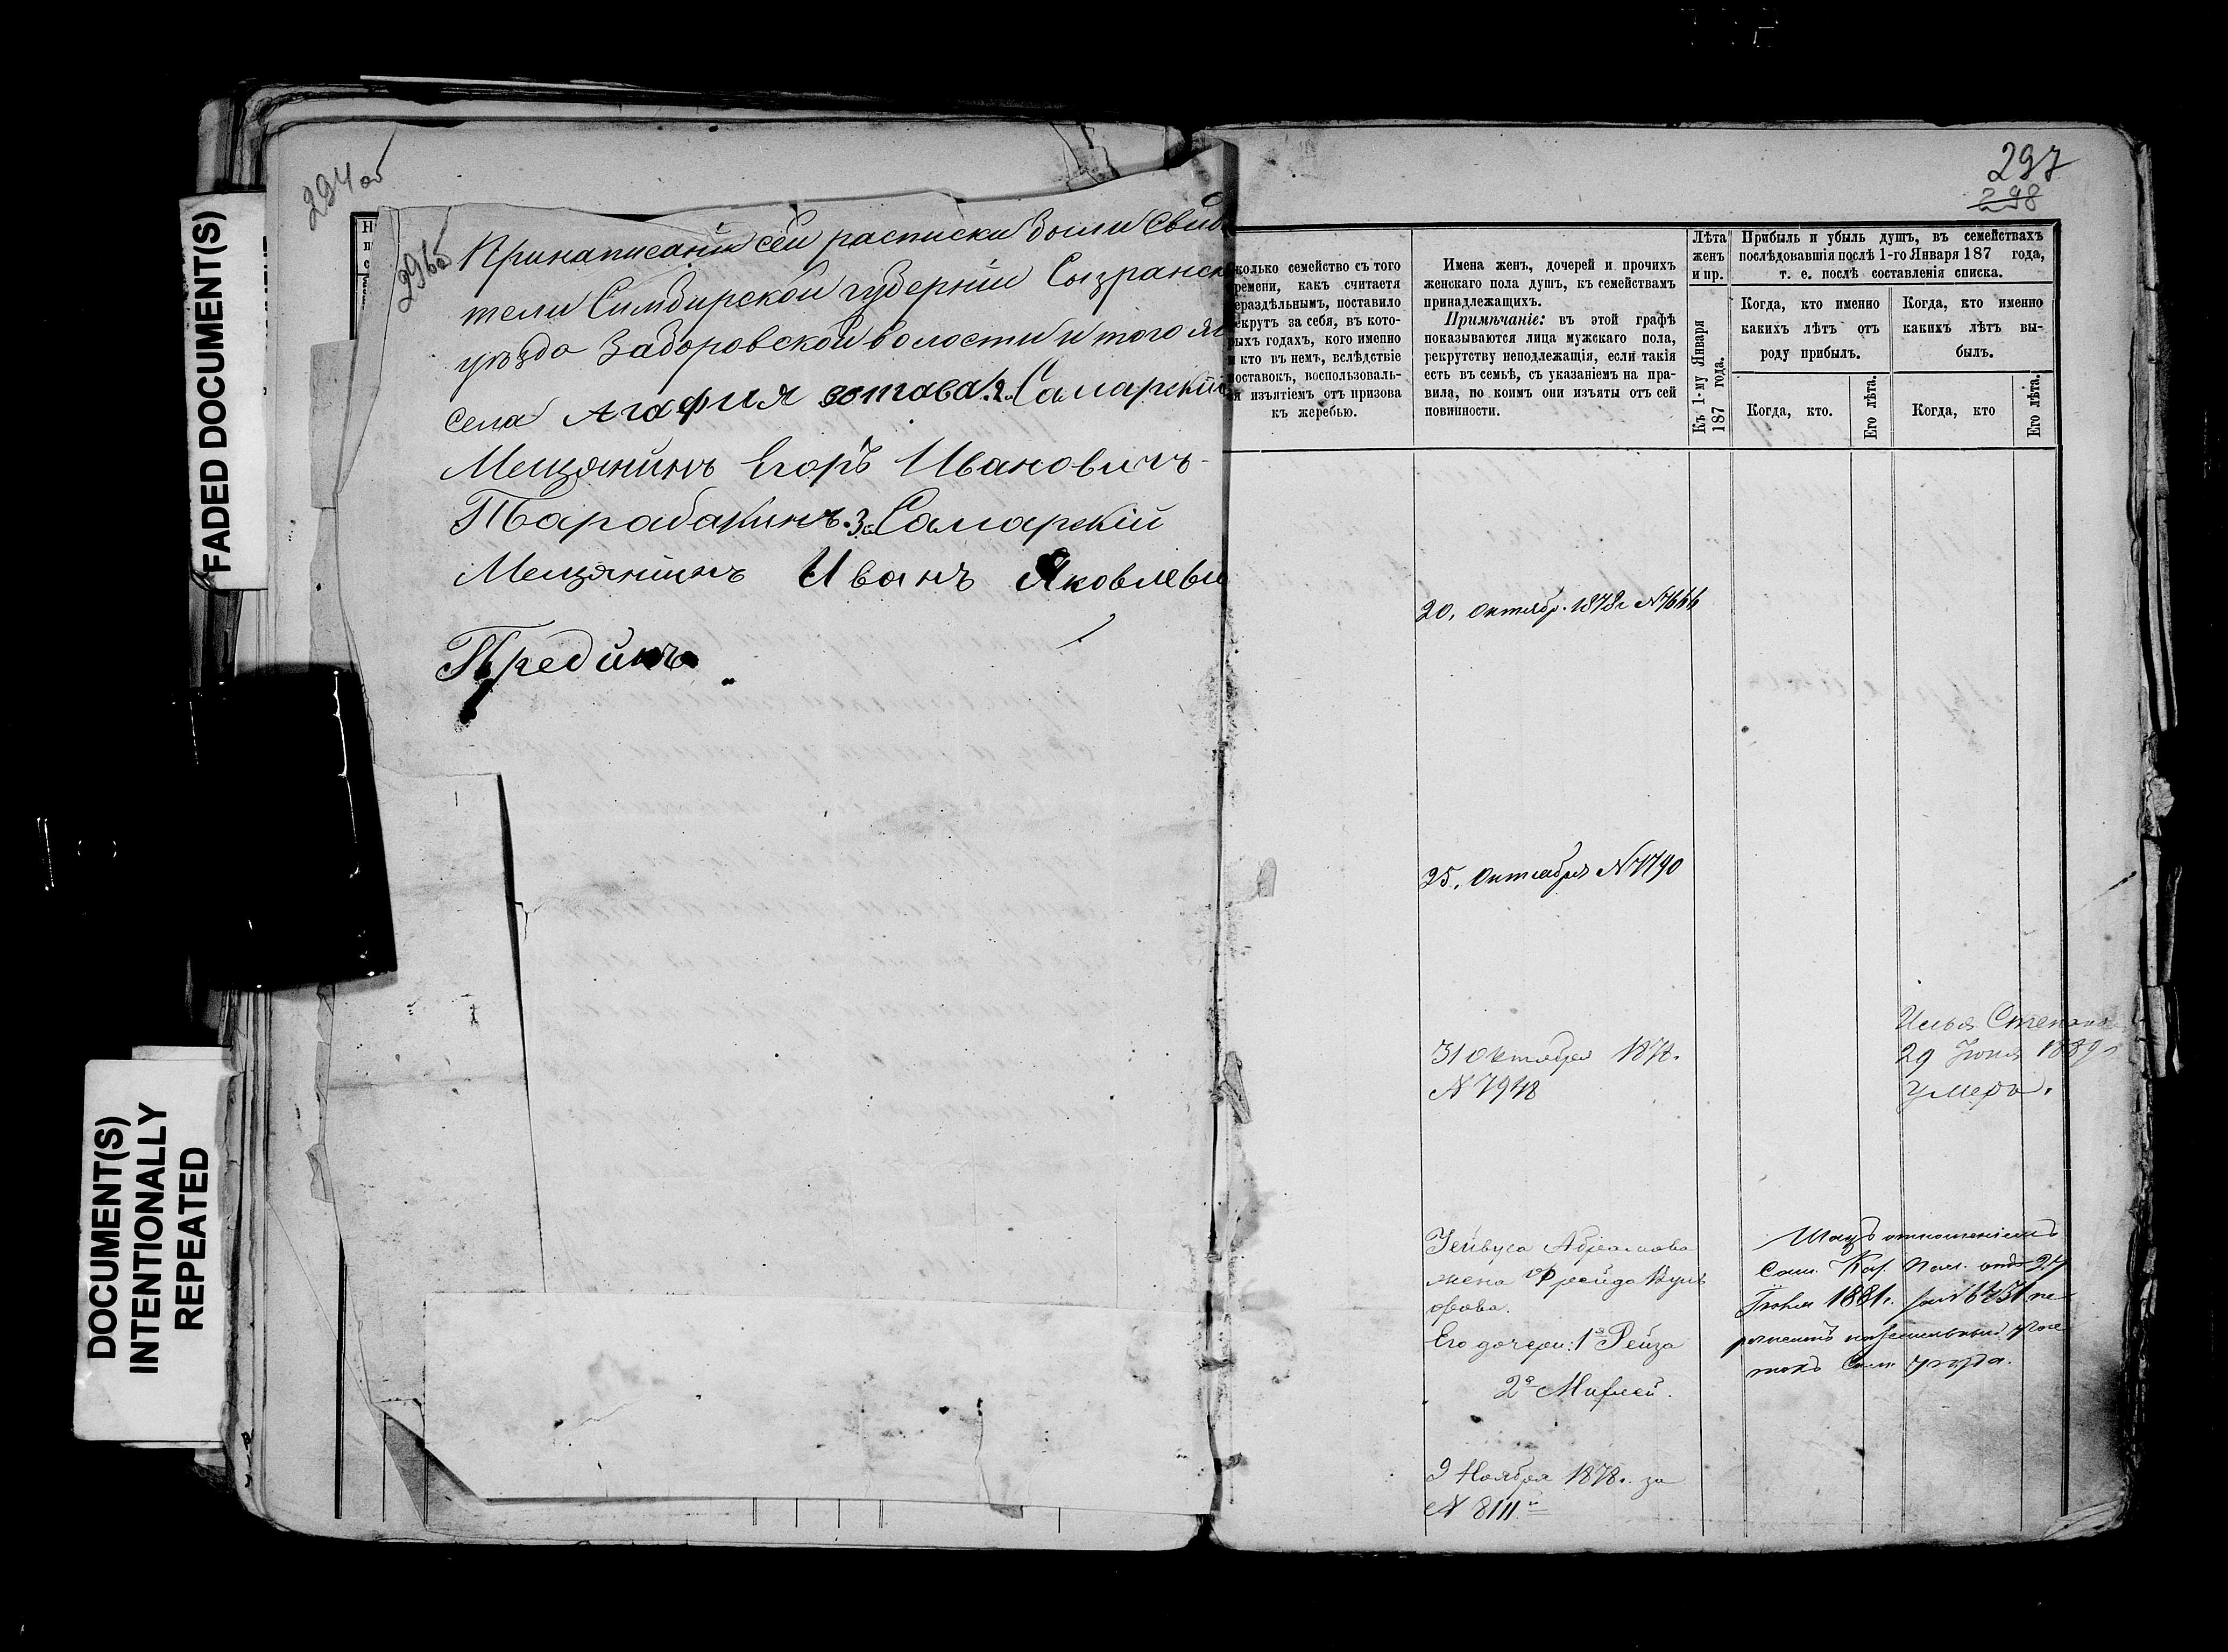 FADED DOCUMENT(S)
DOCUMENT(S)
INTENTIONALLY
REPEATED
294 об
296 об
При написаніи сей расписки были свид
тели Симбирской губерніи Сызранск
уѣзда Заборовской волости и того ж
села Агафия зотава. 2. Самарскій
Мещянинъ Егоръ Ивановичъ
Тарабакинъ. 3. Самарскій
Мещянинъ Иванъ Яковлеви
Прединъ
297
298
колько семейство съ того
ремени, какъ считается
ераздѣльнымъ, поставило
екрутъ за себя, въ кото-
рыхъ годахъ, кого именно
и кто въ немъ, вслѣдствіе
оставокъ, воспользоваль-
я изъятіемъ отъ призова
къ жеребью.
Имена женъ, дочерей и прочихъ
женскаго пола душъ, къ семействамъ
принадлежащихъ.
Примѣчаніе: въ этой графѣ
показываются лица мужскаго пола,
рекрутству неподлежащія, если такія
есть въ семьѣ, съ указаніемъ на пра-
вила, по коимъ они изъяты отъ сей
повинности.
Лѣта
женъ
и пр.
Къ 1-му Января
187 года.
Прибыль и убыль душъ, въ семействахъ
послѣдовавшія послѣ 1-го Января 187 года,
т. е. послѣ составленія списка.
Когда, кто именно
какихъ лѣтъ отъ
роду прибылъ.
Когда, кто именно
какихъ лѣтъ вы-
былъ.
Когда, кто.
Его лѣта.
Когда, кто
Его лѣта.
20. Октябр. 1878г N 7666
25. Октября N 7790
31 Октября 1878г.
N 7948
Илья Степанов
29 Іюня 1889г
умеръ.
Абрамова
жена Фрейда
Его дочери: 1я Рейза
2я
отношеніемъ
Сам. Каз. Пал. отъ 27
1881г. за №
Сам. уѣзда.
9 Ноября 1878г. за
N 8111й